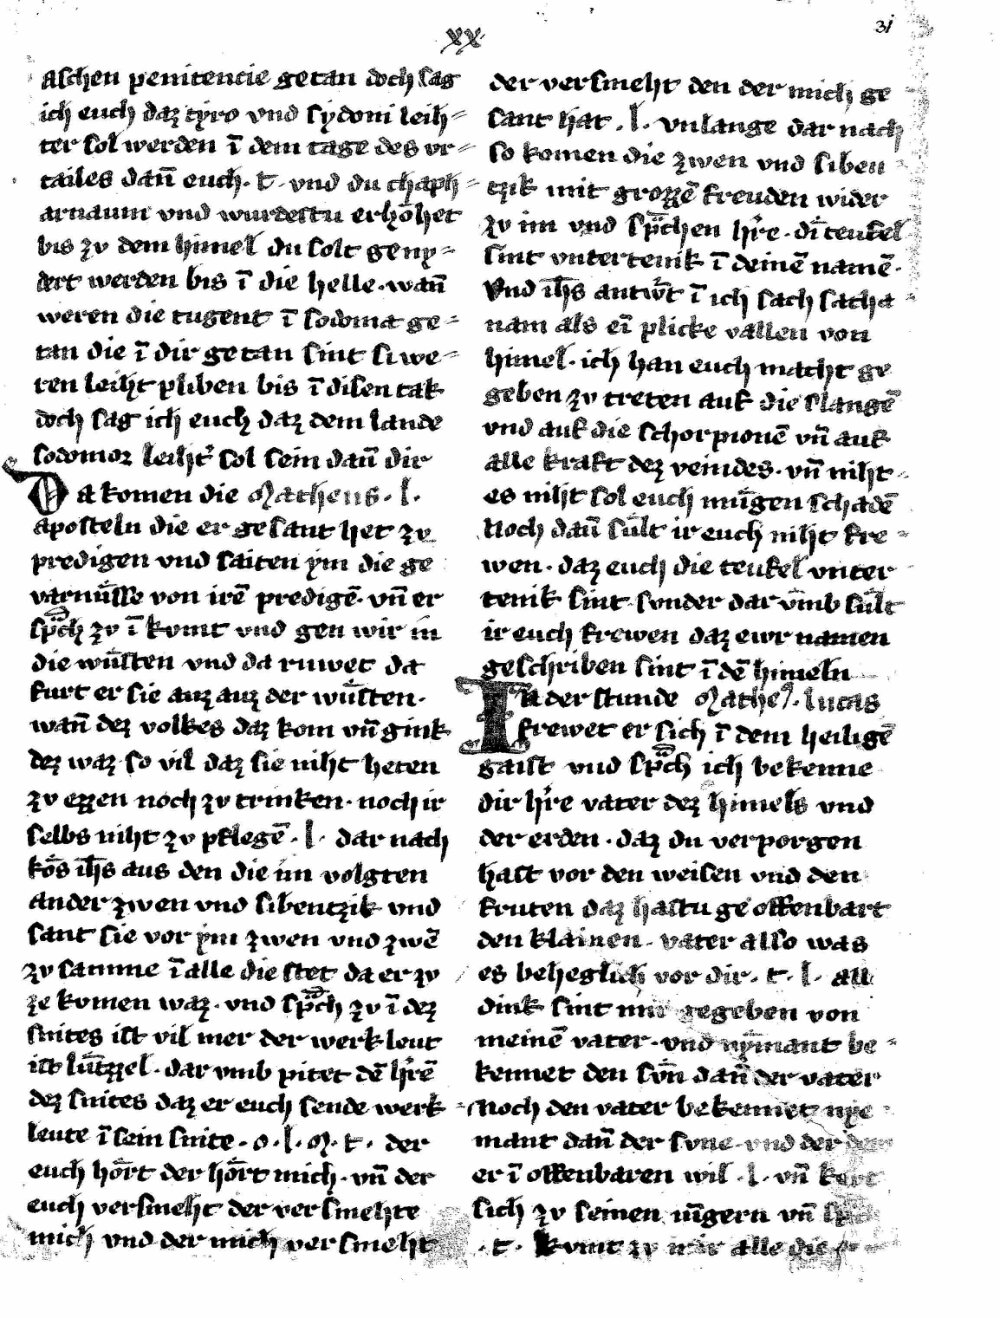 xx
31
aschen penitencie getan doch sag
ich euch daz tyro vnd sydoni leih⸗
ter sol werden ī dem tage des vr⸗
tailes dañ euch · t · vnd du chaph⸗
arnaum vnd wurdestu erhöhet
bis zv dem himel du solt geny⸗
dert werden bis ī die helle · wañ
weren die tugent ī sodoma ge⸗
tan die ī dir getan sint si we⸗
ren leiht pliben bis ī disen tak
doch sag ich euch daz dem lande
sodomoz leiht᷑ sol sein dañ dir
Da komen die Matheus · l ·
aposteln die er gesant het zv
predigen vnd saiten ym die ge
varnüsse von irē predigē · vñ er
sp̄ch zv ī kvmt vnd gen wir in
die wüsten vnd da ruwet da
furt er sie auz auz der wüsten ·
wañ dez volkes daz kom vñ gink
dez waz so vil daz sie niht heten
zv ezzen noch zv trinken · noch ir
selbs niht zv pflegē · l · dar nach
kös ih̄s aus den die im volgten
ander zwen vnd sibentzik vnd
sant sie vor ym zwen vnd zwē
zv samme ī alle die stet da er zv
ze komen waz · vnd sp̄ch zv ī dez
snites ist vil mer der werkleut
ist lützzel · dar vmb pitet dē h᷑rē
dez snites daz er euch sende werk⸗
leute ī sein snite · o · l · M · t · der
euch hört der hört mich · vñ der
euch versmeht der versmehte
mich vnd der mich versmeht
der versmeht den der mich ge
sant hat · l · vnlange dar nach
so komen die zwen vnd siben⸗
tzik mit grozzē freuden wider
zv im vnd sp̄chen h᷑re · di teufel
sint vntertenik ī deinē namē ·
Vnd ih̄s antw᷑t ī ich sach satha
nam als eī plicke vallen von
himel · ich han euch macht ge
geben zv treten auf die slangē
vnd auf die schorpionē vñ auf
alle kraft dez veindes · vñ niht⸗
es niht sol euch mügen schadē
Noch dañ sült ir euch niht fre⸗
wen · daz euch die teufel vnter⸗
tenik sint sonder dar vmb sült
ir euch frewen daz ewr namen
geschriben sint ī dē himeln
In der stunde Mathe9 · lucas
frewet er sich ī dem heiligē
gaist vnd sp̄ch ich bekenne
dir h᷑re vater dez himels vnd
der erden · daz du verporgen
hast vor den weisen vnd den
fruten daz hastu geoffenbart
den klainen · vater also was
es beheglich vor dir · t · l · all
dink sint mir gegeben von
meinē vater · vnd nymant be⸗
kennet den svn dañ der vater
Noch den vater bekennet nye⸗
mant dañ der svne vnd der dem
er ī offenbaren wil · l · vñ kert
sich zv seinen iüngern vñ
· t · Kvmt zv mir alle die